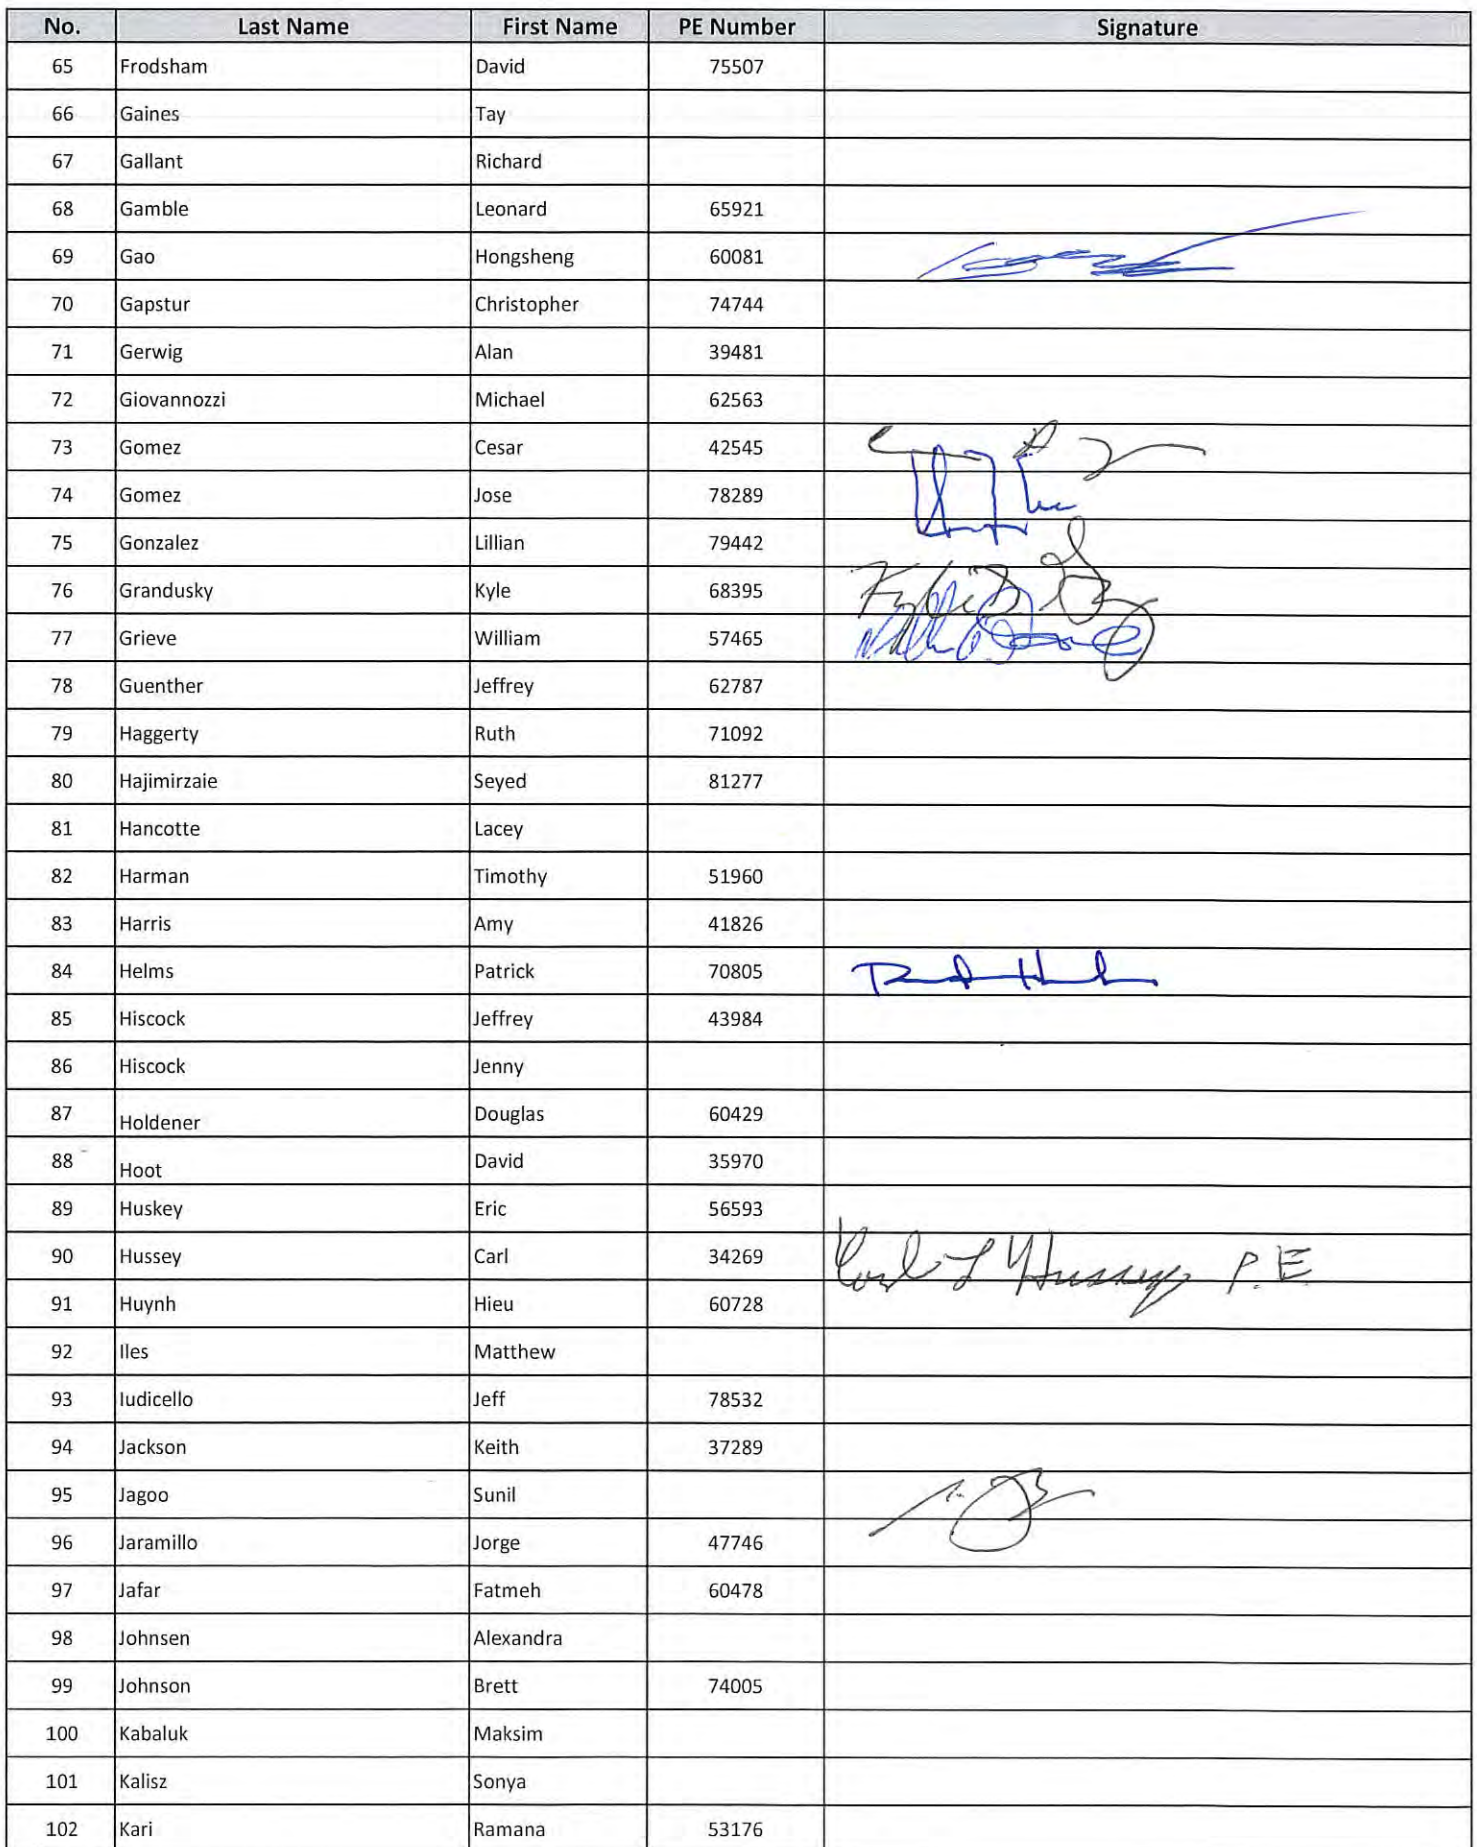 No. Last Name First Name PE Number Signature
65 Frodsham David 75507
66 Gaines Tay
67 Gallant Richard
68 Gamble Leonard 65921
69 Gao Hongsheng 60081
70 Gapstur Christopher 74744
71 Gerwig Alan 39481
72 Giovannozzi Michael 62563
73 Gomez Cesar 42545
74 Gomez Jose 78289
75 Gonzalez Lillian 79442
76 Grandusky Kyle 68395
77 Grieve William 57465
78 Guenther Jeffrey 62787
79 Haggerty Ruth 71092
80 Hajimirzaie Seyed 81277
81 Hancotte Lacey
82 Harman Timothy 51960
83 Harris Amy 41826
84 Helms Patrick 70805
85 Hiscock Jeffrey 43984
86 Hiscock Jenny
87 Holdener Douglas 60429
88 Hoot David 35970
89 Huskey Eric 56593
90 Hussey Carl 34269 Carl L Hussey P.E
91 Huynh Hieu 60728
92 Iles Matthew
93 Iudicello Jeff 78532
94 Jackson Keith 37289
95 Jagoo Sunil
96 Jaramillo Jorge 47746
97 Jafar Fatmeh 60478
98 Johnsen Alexandra
99 Johnson Brett 74005
100 Kabaluk Maksim
101 Kalisz Sonya
102 Kari Ramana 53176